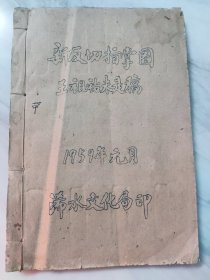 新反切指掌图
王祖佑夫遗稿
1959年元月
浠水文化局印